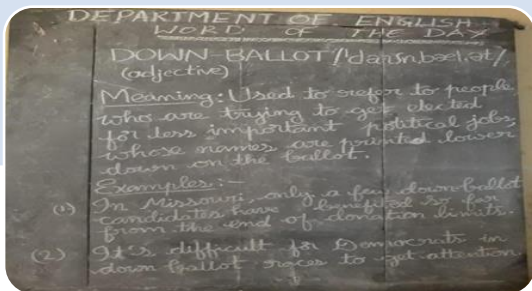 DEPARTMENT OF ENGLISH
WORD OF THE DAY
DOWN BALLOT /'daʊn,bæl.ət/
(adjective)
Meaning: Used to refer to people
who are trying to get elected
for less important political jobs,
whose names are printed lower
down on the ballot.
Examples:-
(1) In Missouri, only a few down-ballot
candidates have benefited so far
from the end of donation limits.
(2) It's difficult for Democrats in
down ballot races to get attention.